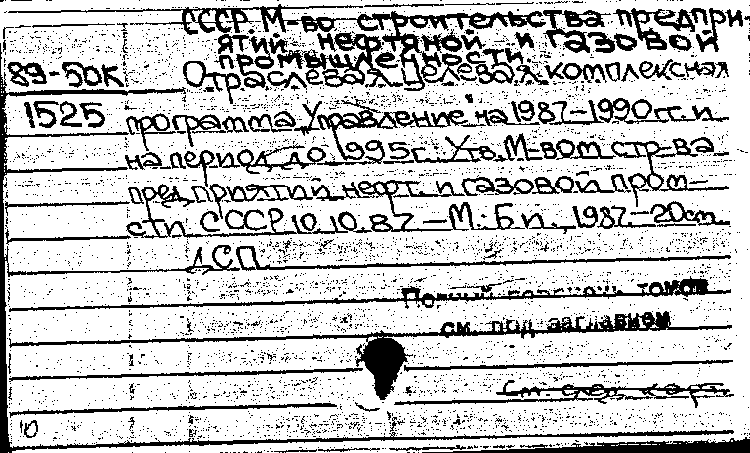 СССР. М-во строительства предпри-
ятий нефтяной и газовой
промышленности
89-50к Отраслевая целевая комплексная
1525 программа „Управление" на 1987-1990гг. и
на период до 1995г. Утв. М-вом стр-ва
предприятий нефт. и газовой пром-
сти СССР 10.10.87 – М.: Б.и., 1987.-20см.
ДСП.
Полный перечень томов
см. под заглавием
См. след. карт.
10